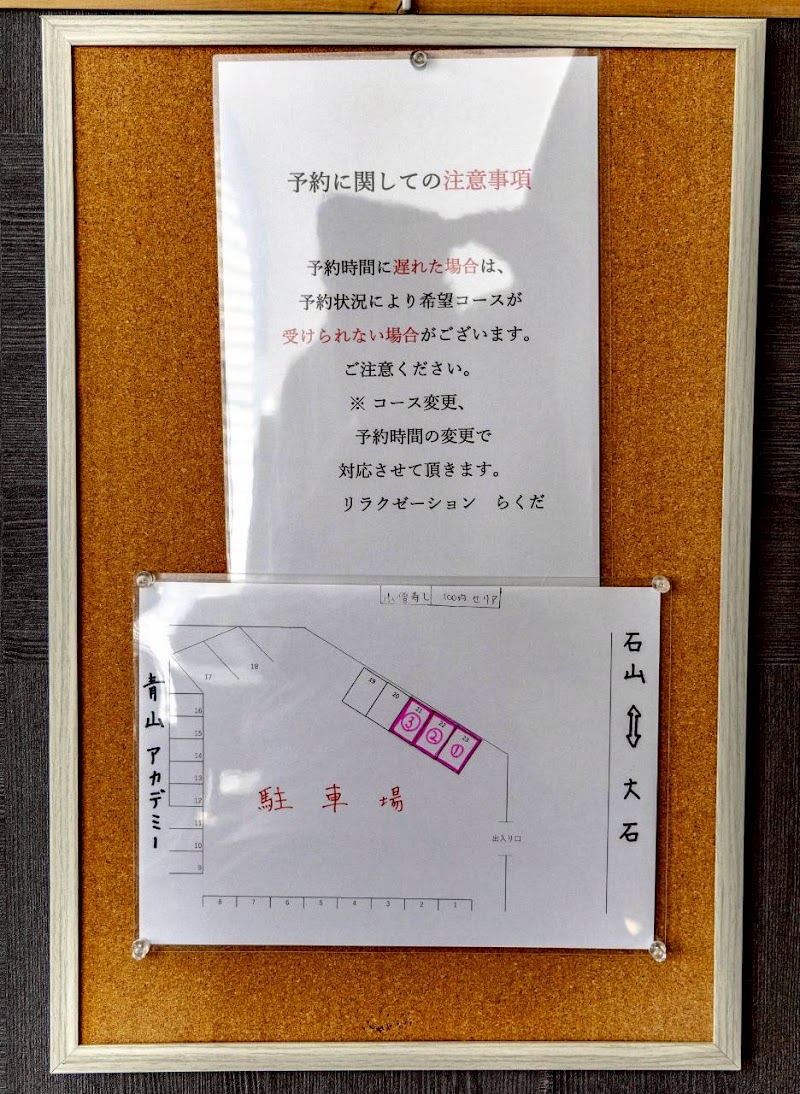 予約に関しての注意事項
予約時間に遅れた場合は、
予約状況により希望コースが
受けられない場合がございます。
ご注意ください。
※ コース変更、
予約時間の変更で
対応させて頂きます。
リラクゼーション らくだ
小僧寿し 100均 セリア
石山 ⇔ 大石
青山 アカデミー
18
17
19
20
21
22
23
③
②
①
16
15
14
13
12
11
10
9
駐車場
出入り口
8 7 6 5 4 3 2 1